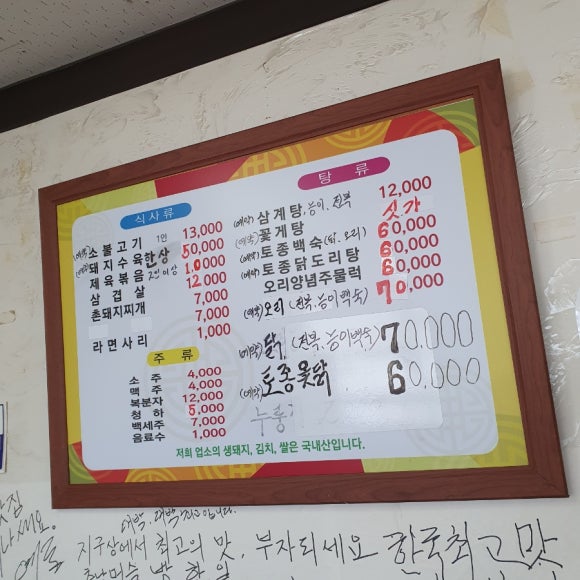 식사류
(예약) 소불고기 1인 13,000
(예약) 돼지수육 한상 50,000
제육볶음 2인 이상 10,000
삼겹살 12,000
촌돼지찌개 7,000
7,000
라면사리 1,000
주류
소주 4,000
맥주 4,000
복분자 12,000
청하 5,000
백세주 7,000
음료수 1,000
탕류
(예약) 삼계탕, 능이, 전복 12,000
(예약) 꽃게탕 싯가
(예약) 토종백숙 (닭, 오리) 60,000
(예약) 토종닭도리탕 60,000
오리양념주물럭 60,000
(예약) 오리 (전복, 능이백숙) 70,000
(예약) 닭 (전복, 능이백숙) 70,000
(예약) 토종옻닭 60,000
저희 업소의 생돼지, 김치, 쌀은 국내산입니다.
지구상에서 최고의 맛, 부자되세요 한국최고맛